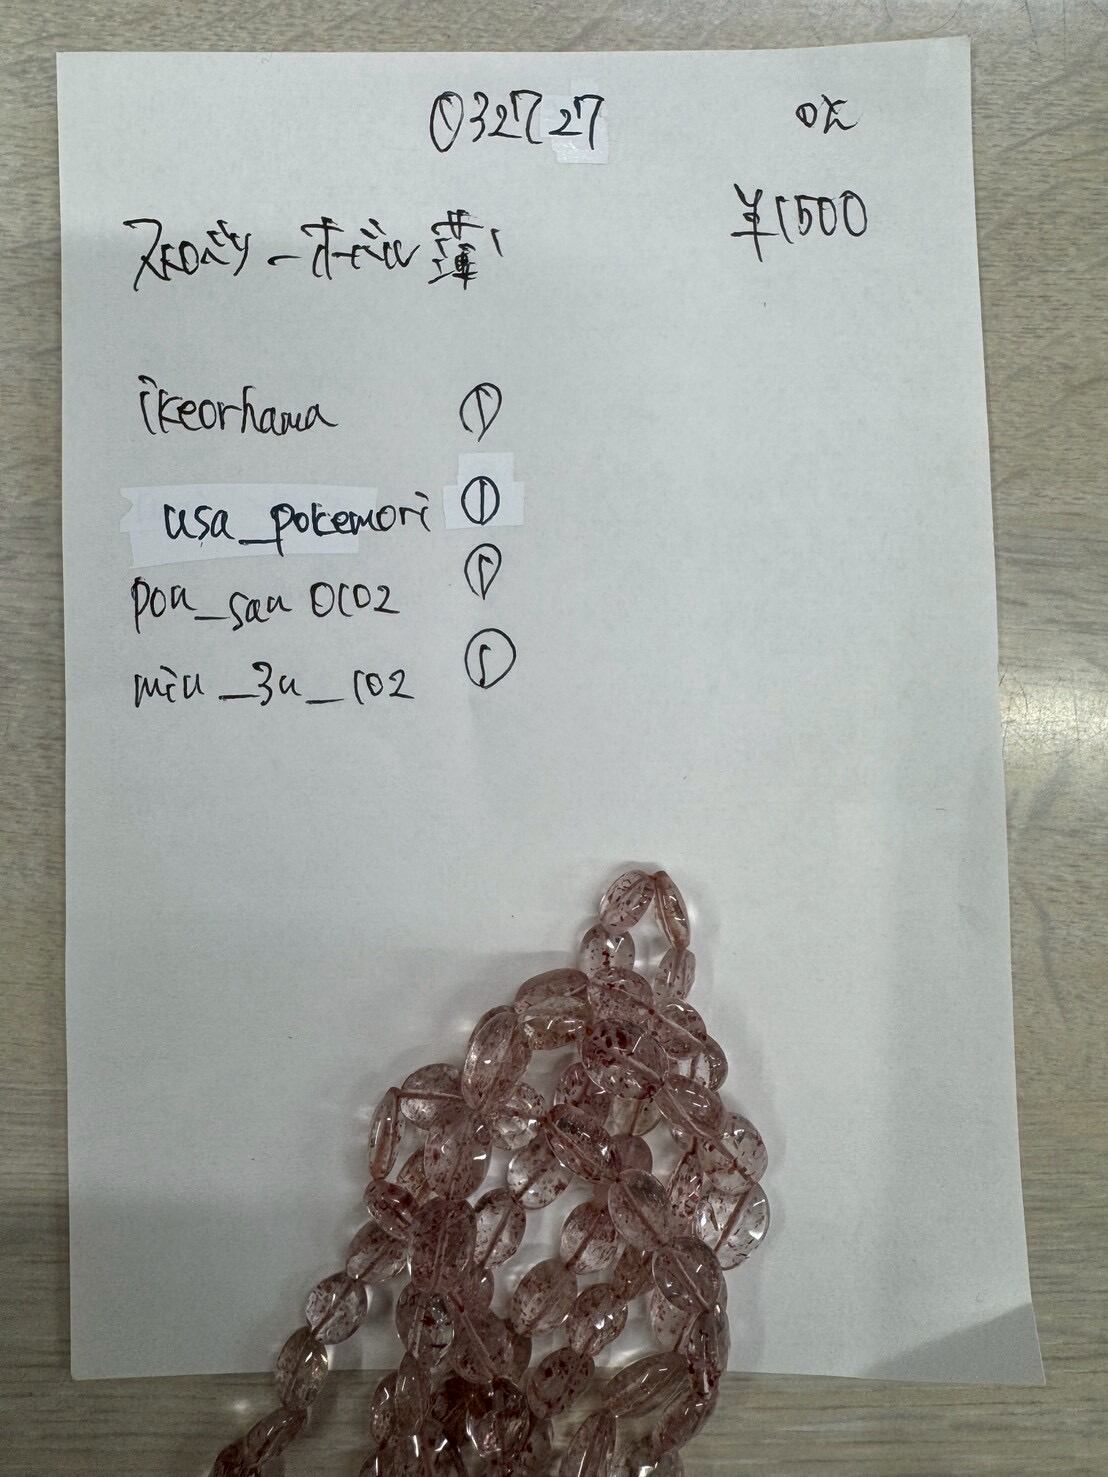 032727 OK
¥1500
ストロベリーオーバル薄
ikeorhama ①
usa_pokemori ①
pon_san 0102 ①
min_3n_102 ①